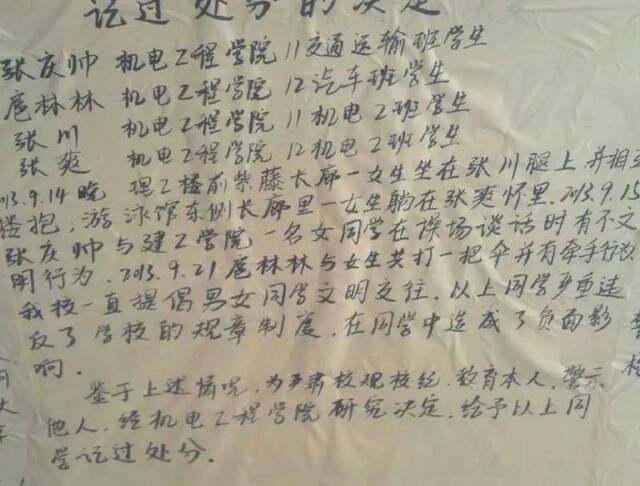 记过处分的决定
张庆帅 机电工程学院11交通运输班学生
扈林林 机电工程学院12汽车班学生
张川 机电工程学院11机电2班学生
张爽 机电工程学院12机电2班学生
2013.9.14晚 理工楼前紫藤长廊一女生坐在张川腿上,并相互
搂抱;游泳馆东侧长廊里一女生躺在张爽怀里.2013.9.15
张庆帅与建工学院一名女同学在操场谈话时有不文
明行为.2013.9.21扈林林与女生共打一把伞并有牵手行为.
我校一直提倡男女同学文明交往.以上同学严重违
反了学校的规章制度.在同学中造成了负面影
响.
鉴于上述情况,为严肃校规校纪.教育本人,警示
他人,经机电工程学院研究决定.给予以上同
学记过处分.